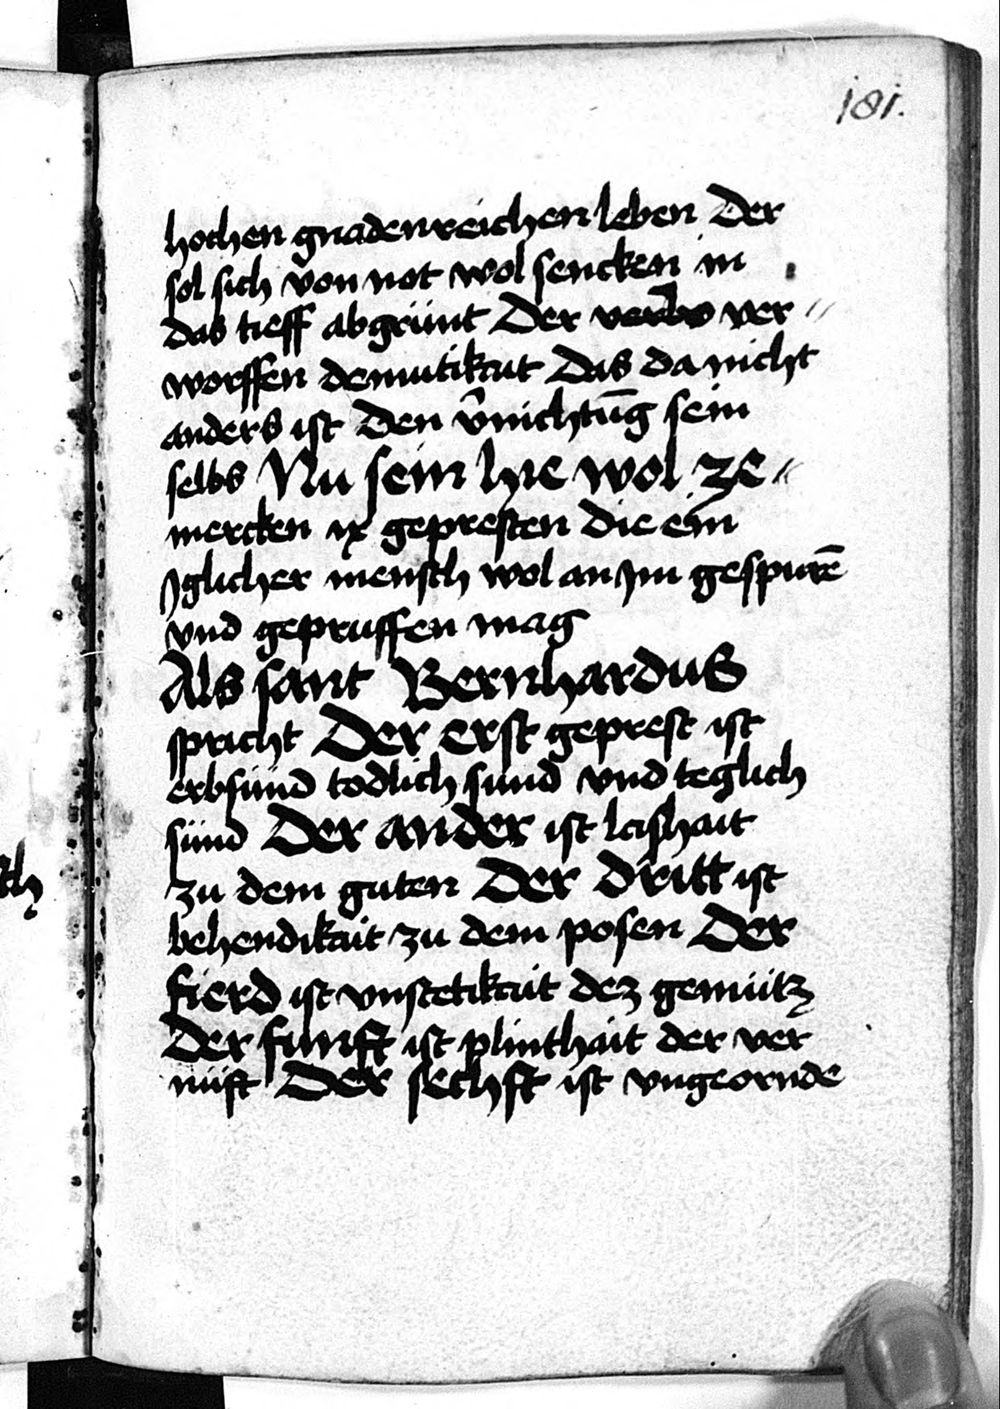 181.
hochen gnadenreichen leben Der
sol sich von not wol sencken in
das tieff abgrünt Der ver
worffen demutikait Das da nicht
anders ist Den v̄nichtūg sein
selbs Nu sein hie wol ze
mercken ix gepresten die ein
Jglicher mensch wol an Jm gespurē
vnd gepruffen mag
Als sant Bernhardus
spricht Der erst geprest ist
erbsünd todlich sund vnd teglich
sünd Der ander ist lashait
zu dem guten Der dritt ist
behendikait zu dem posen Der
fierd ist vnstetikait dez gemütz
Der funft ist plinthait der ver
nüft Der sechst ist vngeornde